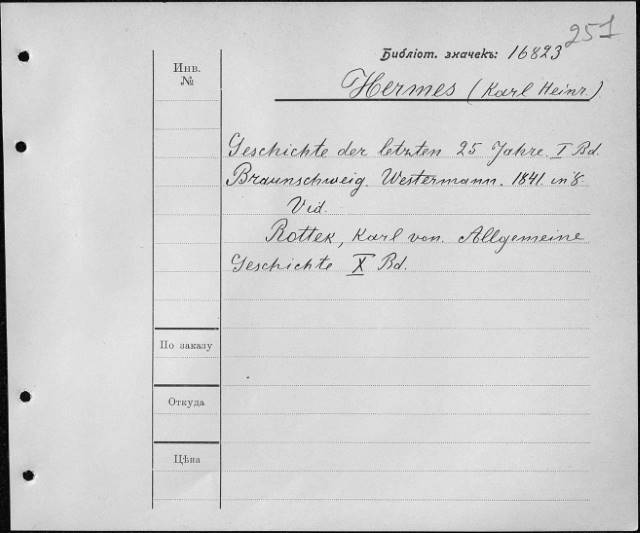 251
Библіот. значекъ: 16823
Инв.
№
Hermes (Karl Heinr.)
Geschichte der letzten 25 Jahre. I Bd.
Braunschweig. Westermann. 1841. in 8.
Vid.
Rottek, Karl von. Allgemeine
Geschichte X Bd.
По заказу
Откуда
Цѣна